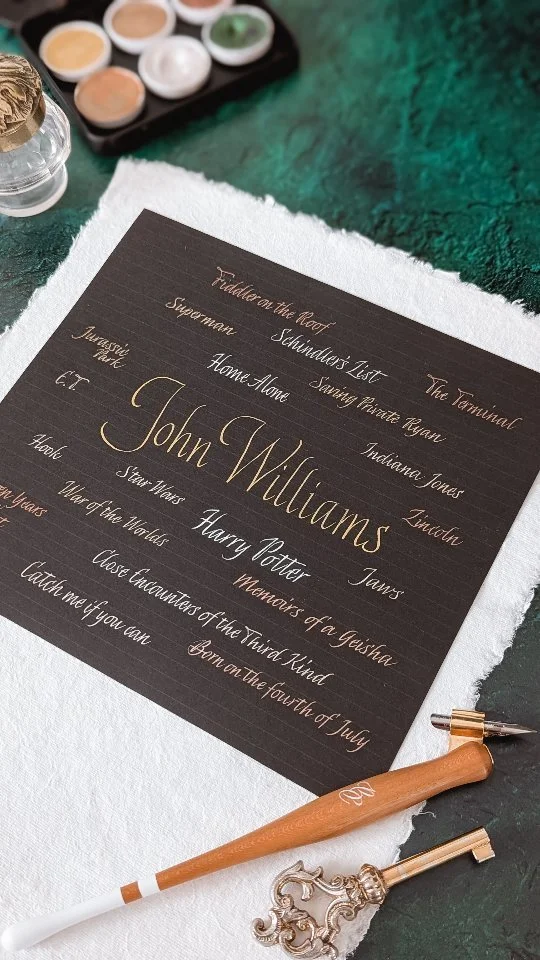 Fiddler on the Roof
Superman
Schindler's List
Jurassic
Park
Home Alone
Saving Private Ryan
The Terminal
E.T.
John Williams
Indiana Jones
Hook
Star Wars
Lincoln
Years
War of the Worlds
Harry Potter
Jaws
Close Encounters of the Third Kind
Memoirs of a Geisha
Catch me if you can
Born on the fourth of July